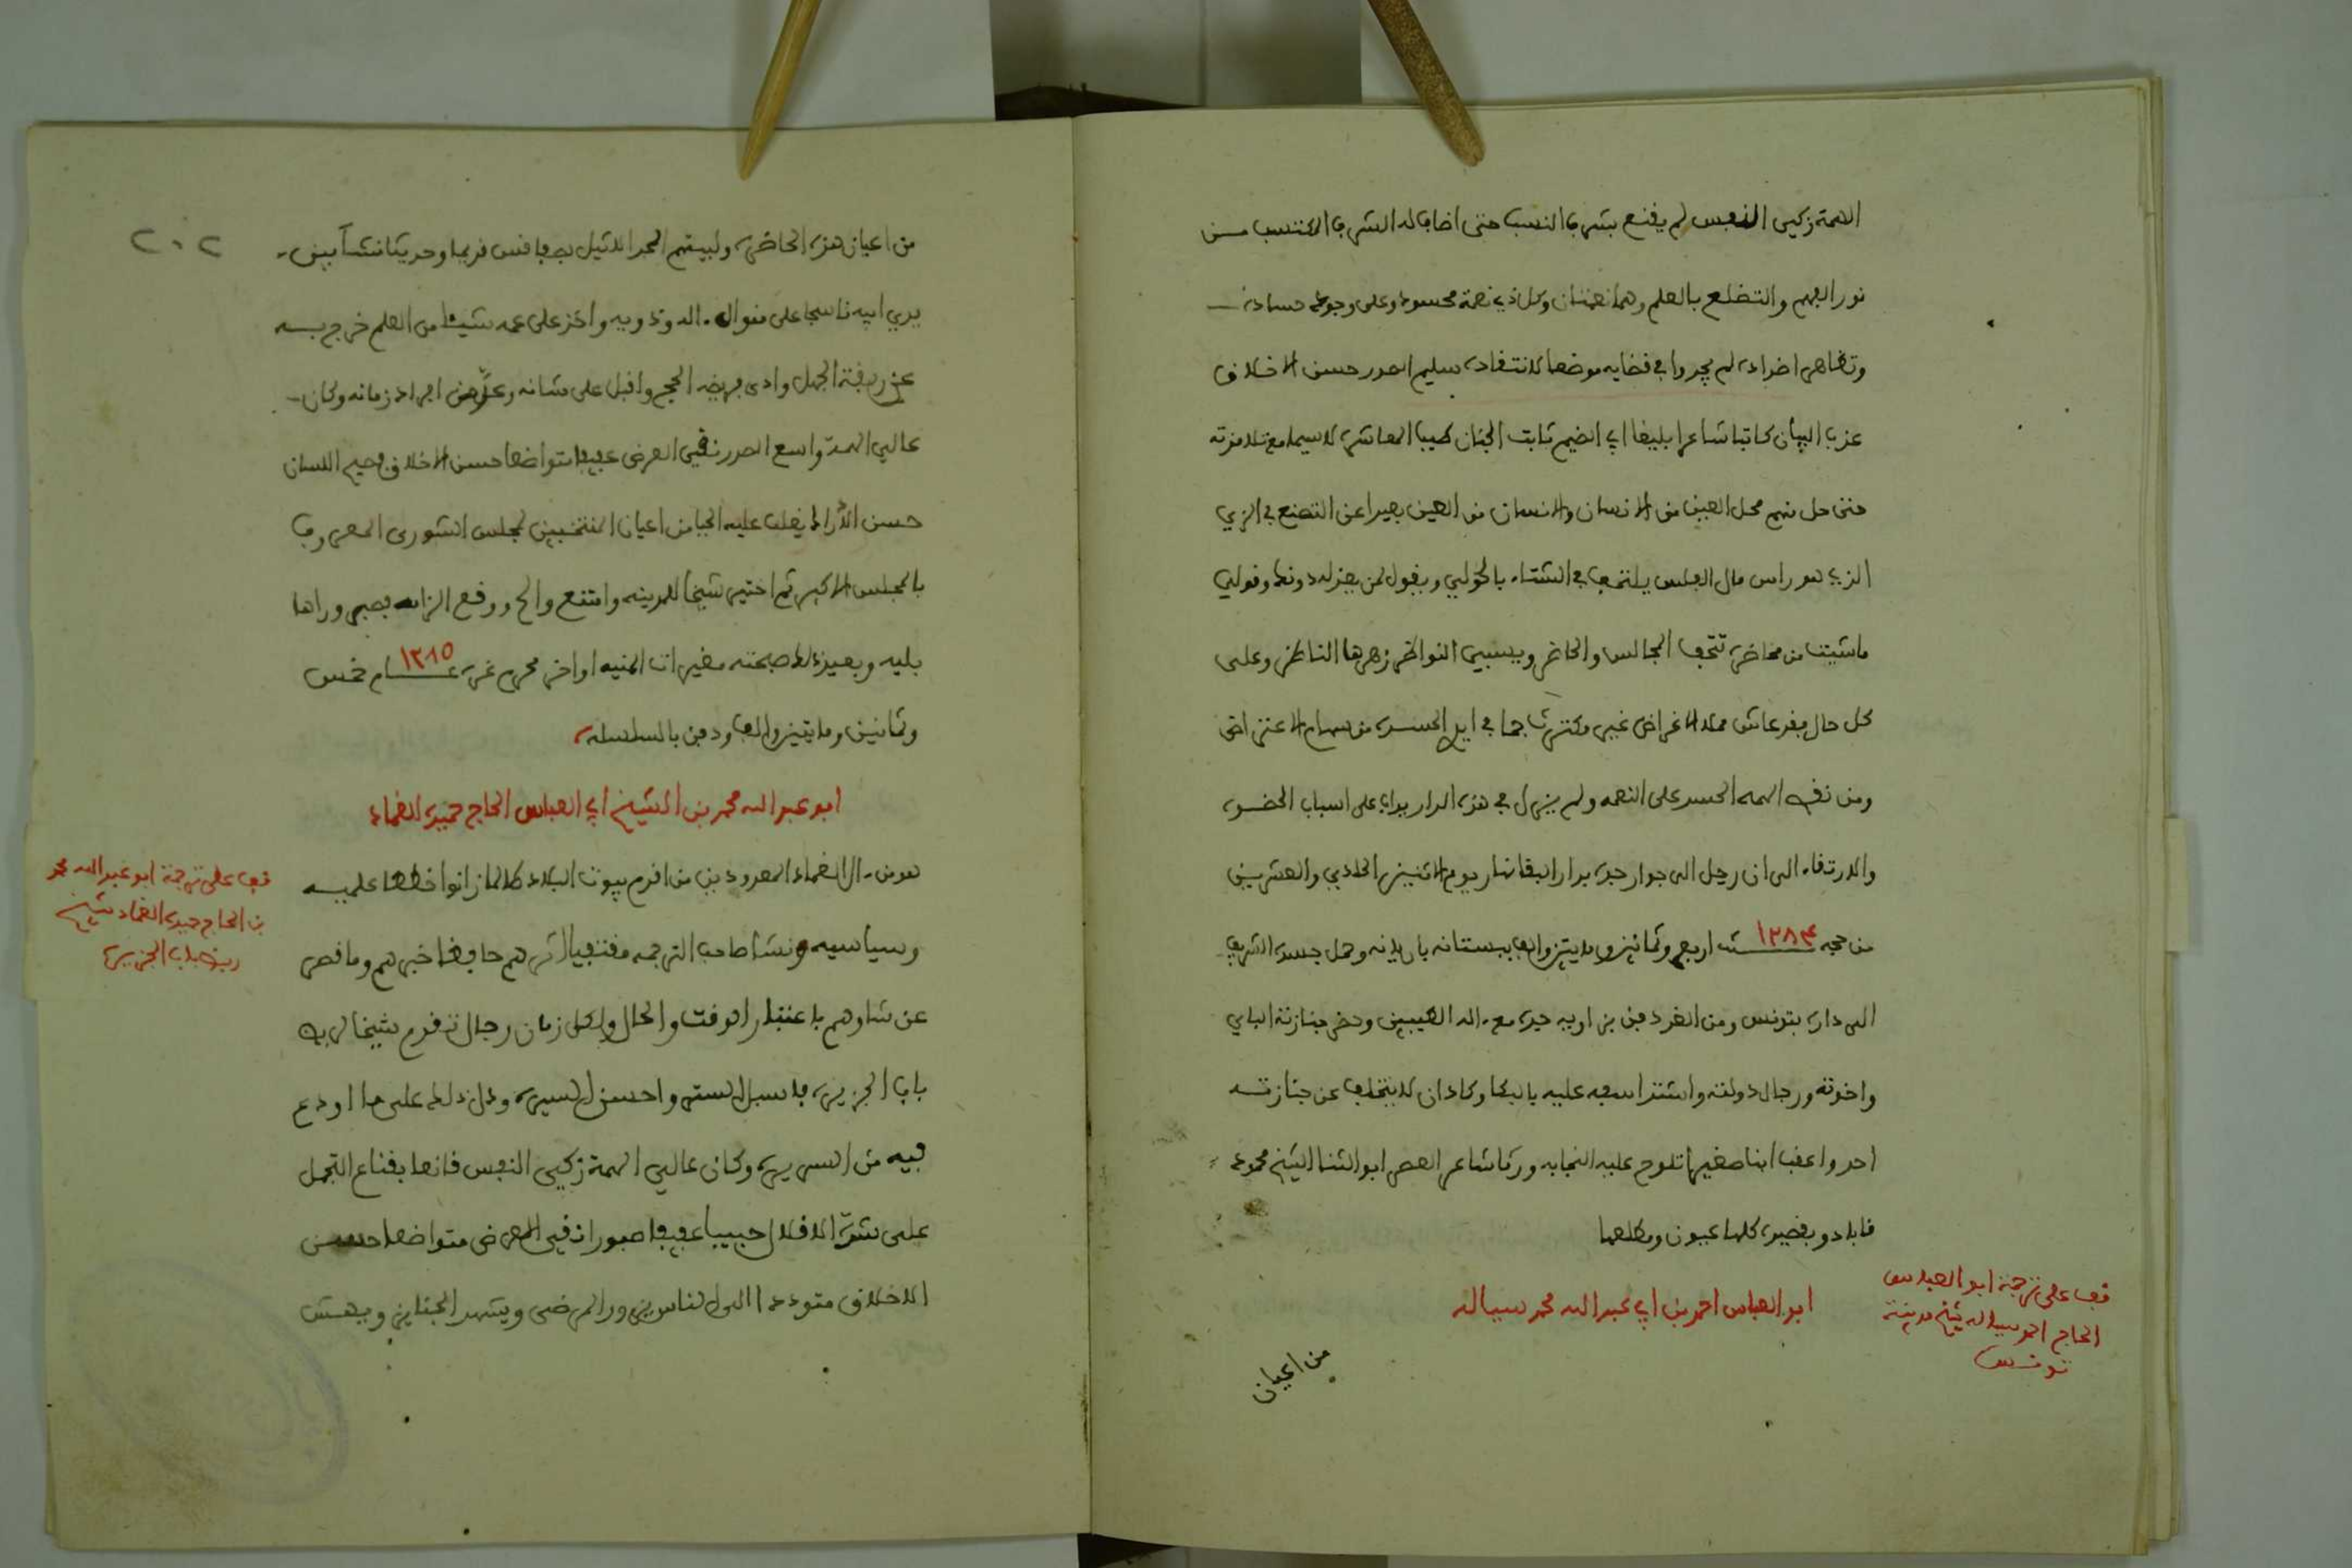 الهمة زكي النفس لم يقنع بشرف النسب حتى اضاف له الشرف المكتسب من
نور الفهم والتضلع بالعلم وهما نعمتان وكل ذي نعمة محسود وعلى وجوه حساده
وتظاهر اضداده لم يجدوا في قضايه موضعا للانتقاد سليم الصدر حسن الاخلاق
عذب البيان كاتبا شاعرا بليغا ابي الضيم ثابت الجنان طيب المعاشرة لاسيما مع تلامذته
حتى حل منهم محل العين من الانسان والانسان من العين بعيدا عن التصنع في الزي
الذي هو راس مال المفلس يلتحف في الشتاء بالحولي ويقول لمن يعذله دونك وقولي
ما شيت من محاضرة تتحف المجالس والحاضر ويسبي النواظر زهرها الناظر وعلى
كل حال فقد عاش ممتد الاغراض غير مكترث بما في ايدي الحسدة من سهام الاعتراض
ومن تمام النعمه الحسد على النعمه ولم يزل في هذه الدار يراي على اسباب الحضوة
والارتقاء الى ان رحل الى جوار جده بدار البقا نهار يوم الاثنين الحادي والعشرين
من حجه سنة ١٢٨٤ اربع وثمانين ومايتين والف ببستانه باريانه وحمل جسده الشريف
الى داره بتونس ومن الغد دفن بزاوية جده مع اله الطيبين وحضر جنازته الباي
واخوته ورجال دولته واشتد اسفه عليه بالبكا وكاد ان لا يتخلف عن جنازته
احد واعقب ابنا صغيرا تلوح عليه النجابه ورثا شاعر العصر ابو الثنا الشيخ محمود
قابادو بقصيدة كلها عيون ومطلعها
ابو العباس احمد بن ابي عبد الله محمد سياله
قف على ترجمة ابو العباس
الحاج احمد سياله شيخ مدينة
تونس
من اعيان
٢٠٢
من اعيان هذه الحاضرة ولبيتهم المجد الاثيل بصفاقس قديما وحديثا نشأ بين
يدي ابيه ناسجا على منوال اله وذويه واخذ على عمه شيئا من العلم خرج به
عن ربقة الجهل وادى فريضة الحج واقبل على شانه وعُدَّ من افراد زمانه وكان
عالي الهمة واسع الصدر نقي العرض عفيفا متواضعا حسن الاخلاق فصيح اللسان
حسن الأراء يغلب عليه الحيا من اعيان المنتخبين لمجلس الشورى المعروف
بالمجلس الاكبر ثم اختير شيخا للمدينه وامتنع والح ووقع الزامه فصبر وراها
بليه وبعيد ذلك صبحته مغيرات المنيه اواخر محرم غرة عام ١٢٨٥ خمس
وثمانين ومايتين والف ودفن بالسلسله
ابو عبد الله محمد بن الشيخ ابي العباس الحاج حميده الغماد
قف على ترجمة ابو عبد الله محمد
بن الحاج حميدة الغماد شيخ
ربض باب الجزيرة
هو من ال الغماد المعدودين من اقدم بيوت البلاد طالما زانوا خططا علميه
وسياسيه ونشا صاحب الترجمه مقتفيا اثرهم حافظا خبرهم وما قصر
عن شاوهم باعتبار الوقت والحال ولكل زمان رجال تقدم شيخا لربض
باب الجزيرة فاسبل الستر واحسن السيرة ودل ذلك على ما اودع
فيه من السريرة وكان عالي الهمة زكي النفس قانعا بقناع التجمل
على شدة الاقلال حبيبا عفيفا صبورا نقي العرض متواضعا حسن
الاخلاق متوددا الى الناس يزور المرضى ويشهد الجنايز ويهش